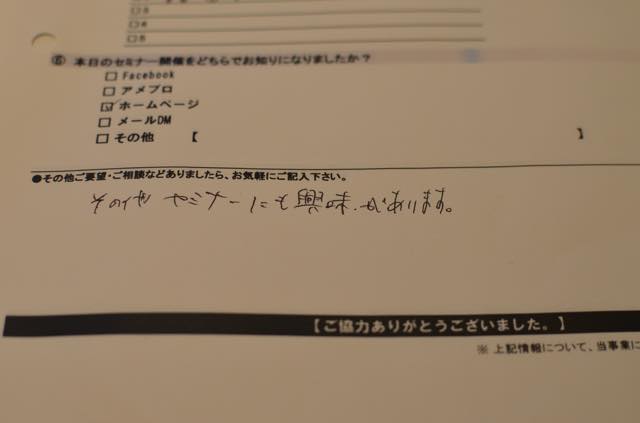 □3
□4
□5
⑥ 本日のセミナー開催をどちらでお知りになりましたか?
□ Facebook
□ アメブロ
☑ ホームページ
□ メールDM
□ その他 【 】
●その他ご要望・ご相談などありましたら、お気軽にご記入下さい。
その他セミナーにも興味があります。
【ご協力ありがとうございました。】
※ 上記情報について、当事業に